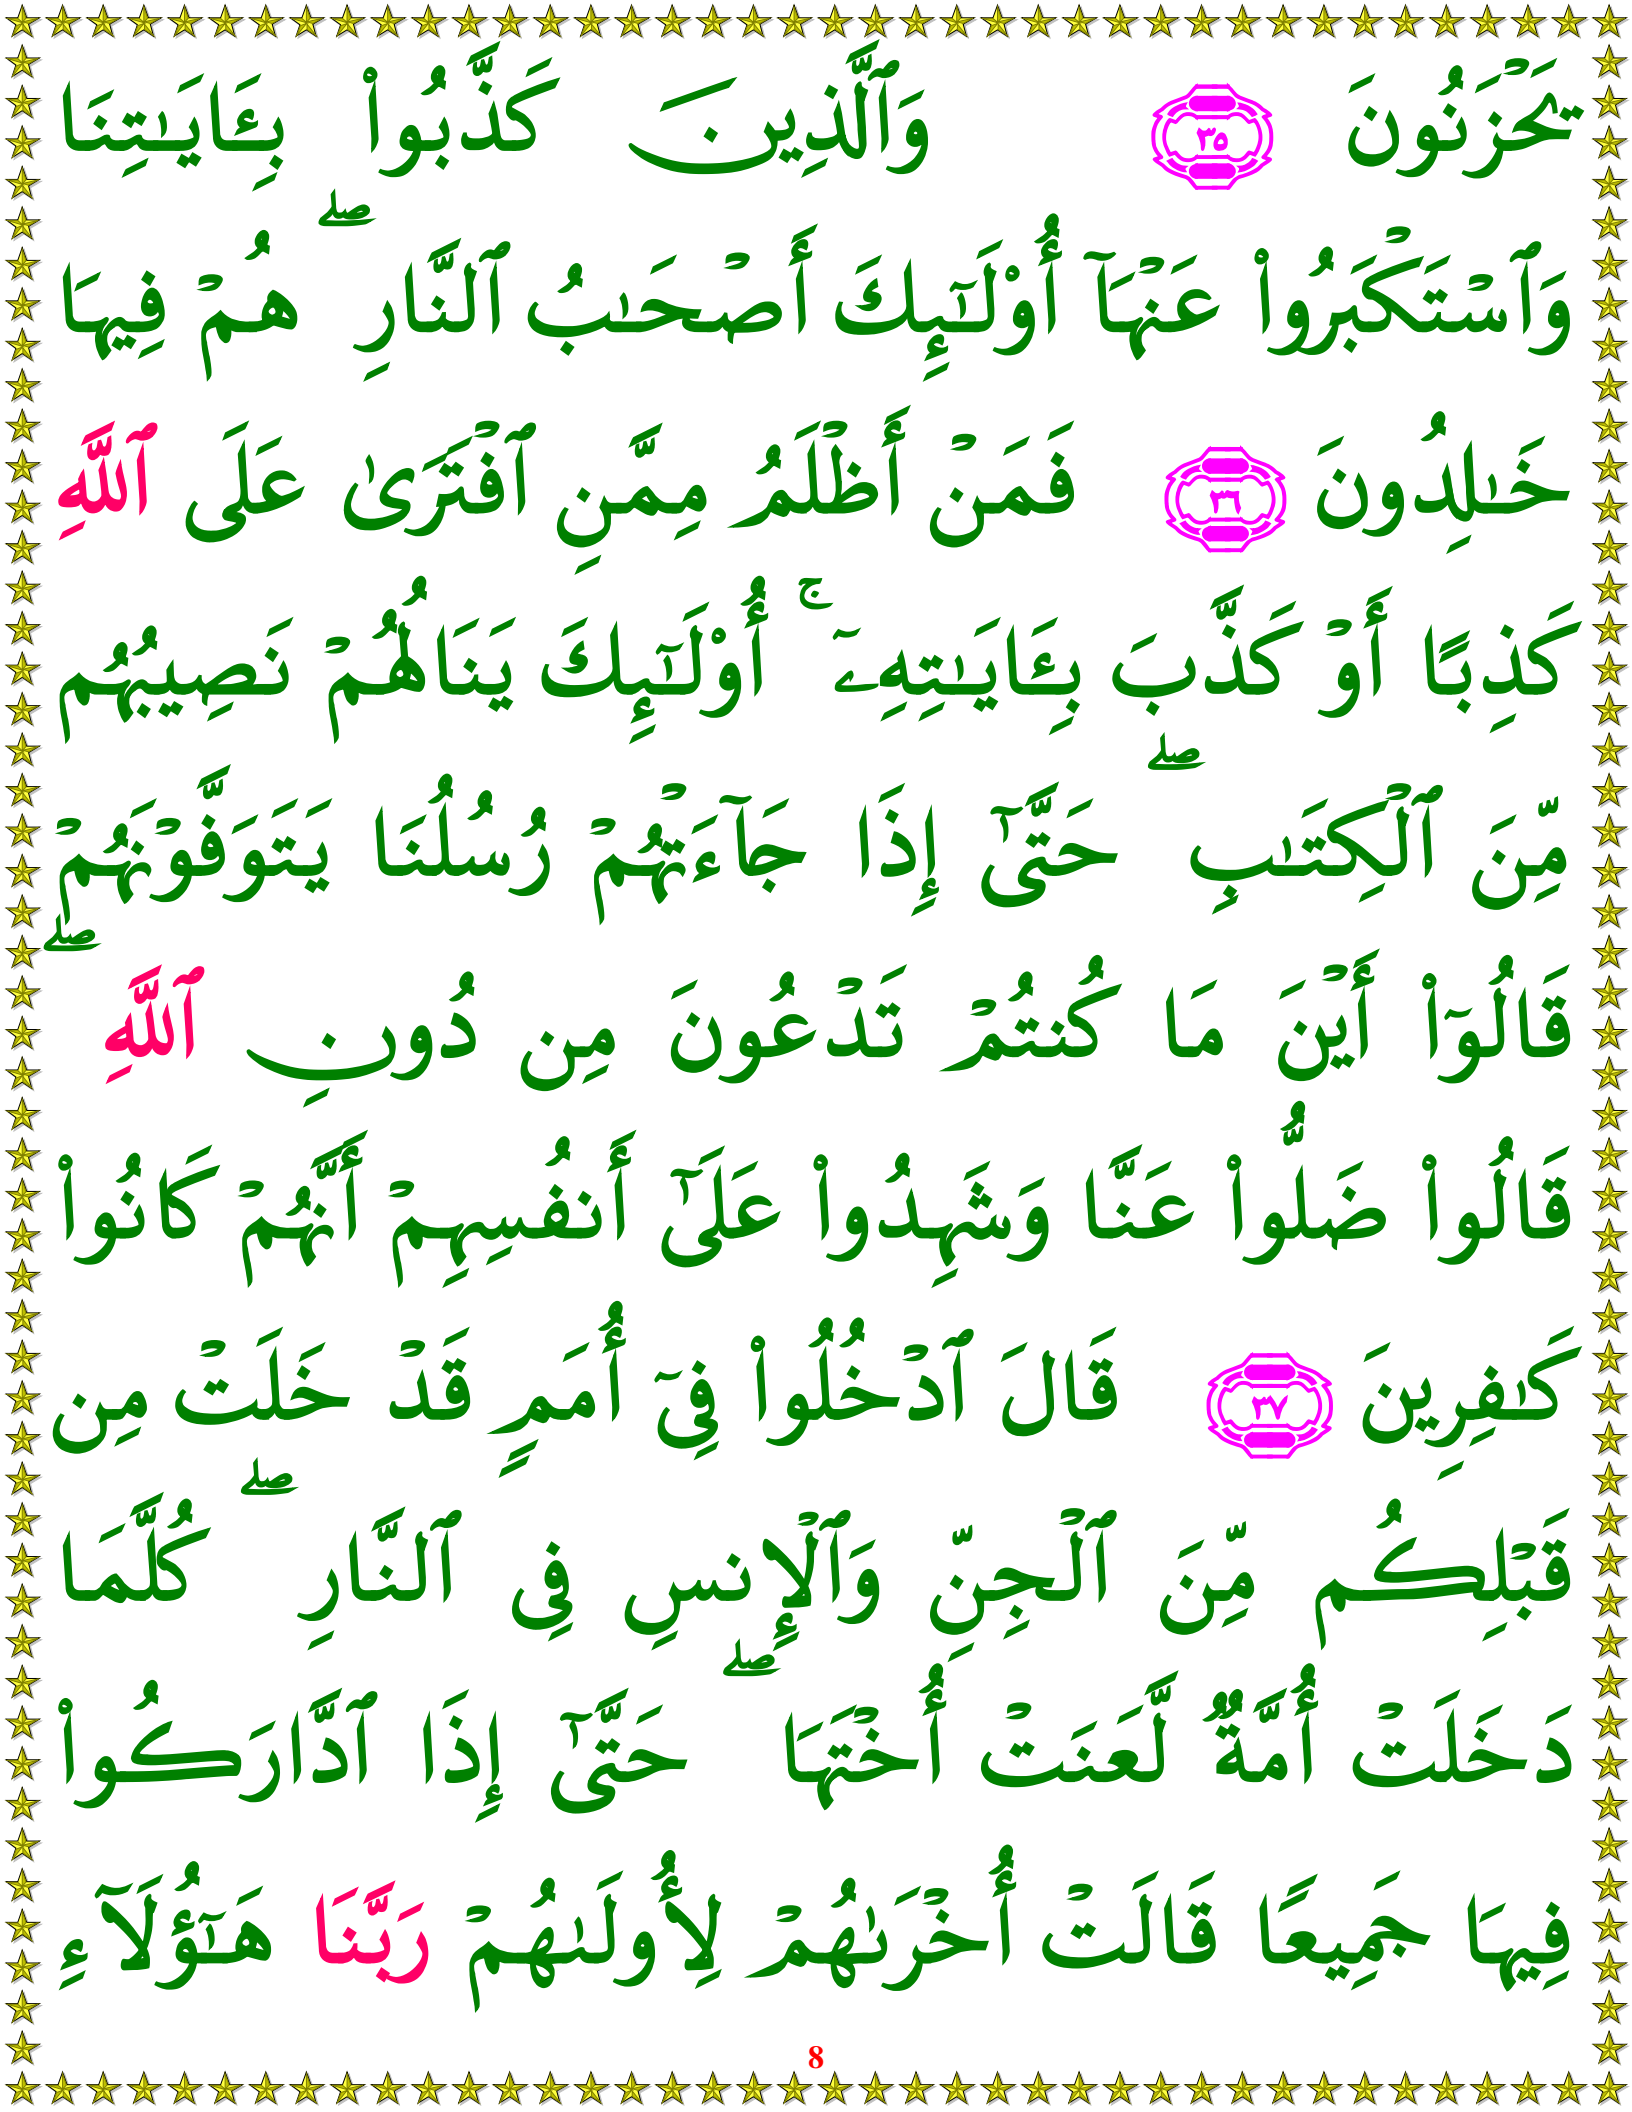 يَحْزَنُونَ ٣٥ وَٱلَّذِينَ كَذَّبُوا۟ بِـَٔايَـٰتِنَا
وَٱسْتَكْبَرُوا۟ عَنْهَآ أُو۟لَـٰٓئِكَ أَصْحَـٰبُ ٱلنَّارِ ۖ هُمْ فِيهَا
خَـٰلِدُونَ ٣٦ فَمَنْ أَظْلَمُ مِمَّنِ ٱفْتَرَىٰ عَلَى ٱللَّهِ
كَذِبًا أَوْ كَذَّبَ بِـَٔايَـٰتِهِۦٓ ۚ أُو۟لَـٰٓئِكَ يَنَالُهُمْ نَصِيبُهُم
مِّنَ ٱلْكِتَـٰبِ ۖ حَتَّىٰٓ إِذَا جَآءَتْهُمْ رُسُلُنَا يَتَوَفَّوْنَهُمْ
قَالُوٓا۟ أَيْنَ مَا كُنتُمْ تَدْعُونَ مِن دُونِ ٱللَّهِ ۖ
قَالُوا۟ ضَلُّوا۟ عَنَّا وَشَهِدُوا۟ عَلَىٰٓ أَنفُسِهِمْ أَنَّهُمْ كَانُوا۟
كَـٰفِرِينَ ٣٧ قَالَ ٱدْخُلُوا۟ فِىٓ أُمَمٍ قَدْ خَلَتْ مِن
قَبْلِكُم مِّنَ ٱلْجِنِّ وَٱلْإِنسِ فِى ٱلنَّارِ ۖ كُلَّمَا
دَخَلَتْ أُمَّةٌ لَّعَنَتْ أُخْتَهَا ۖ حَتَّىٰٓ إِذَا ٱدَّارَكُوا۟
فِيهَا جَمِيعًا قَالَتْ أُخْرَىٰهُمْ لِأُولَىٰهُمْ رَبَّنَا هَـٰٓؤُلَآءِ
8